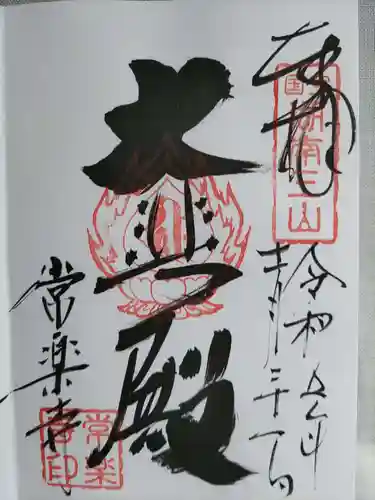 奉拝
国宝
湖南三山
令和五年
十二月三十一日
大悲殿
常楽寺
常楽寺印